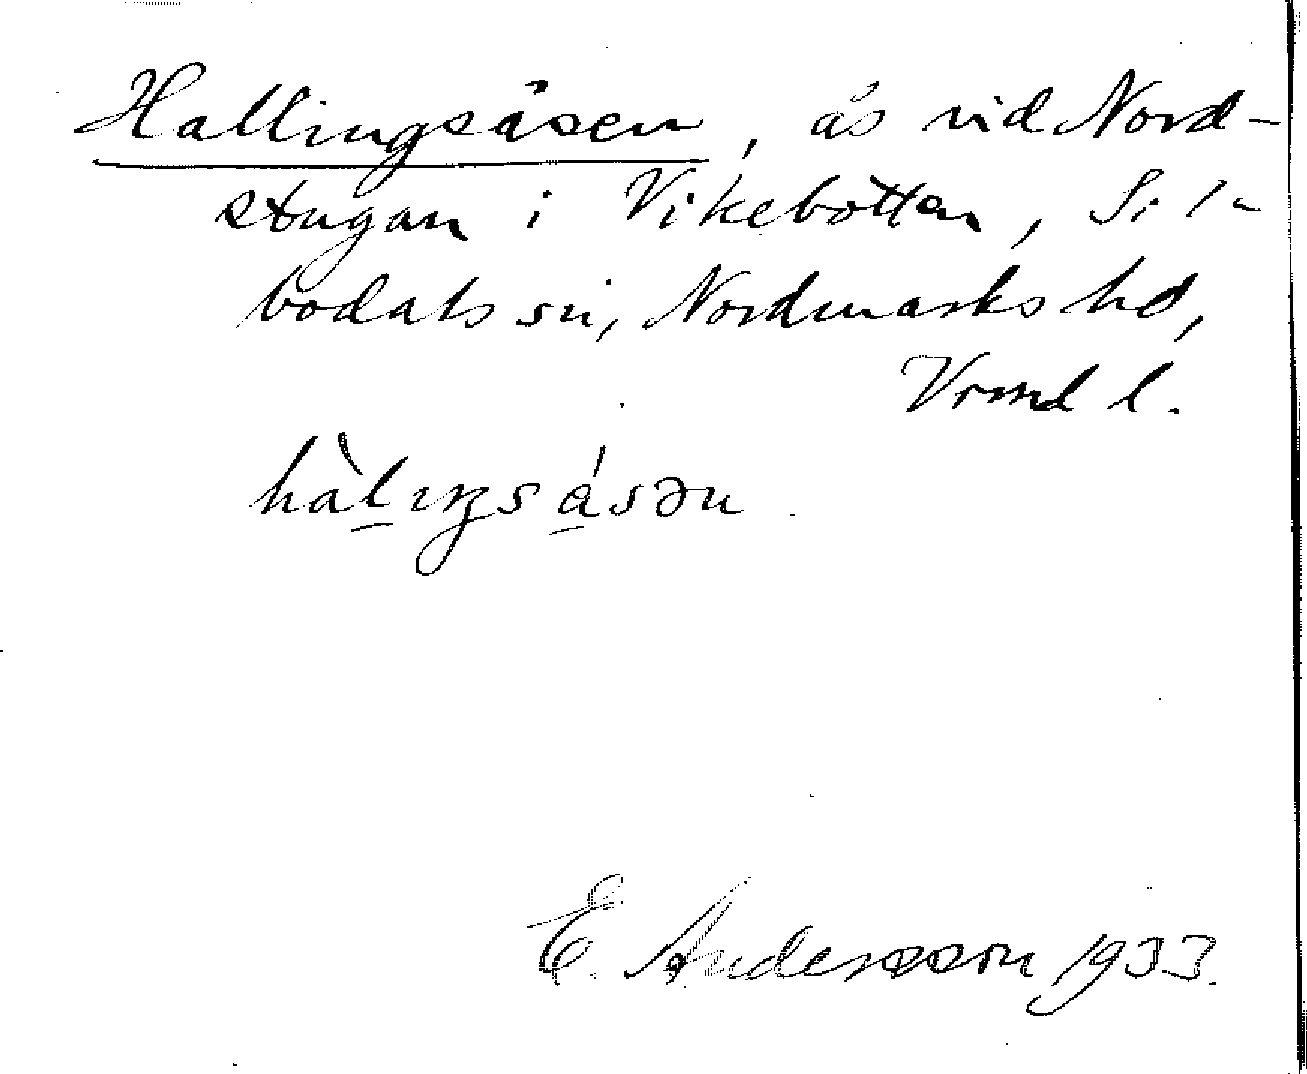 Hallingsåsen, ås vid Nord-
stugan i Vikebotten, Sil-
bodals sn, Nordmarks hd,
Vrmd l.
hàlıŋsásən.
E. Andersson 1933.